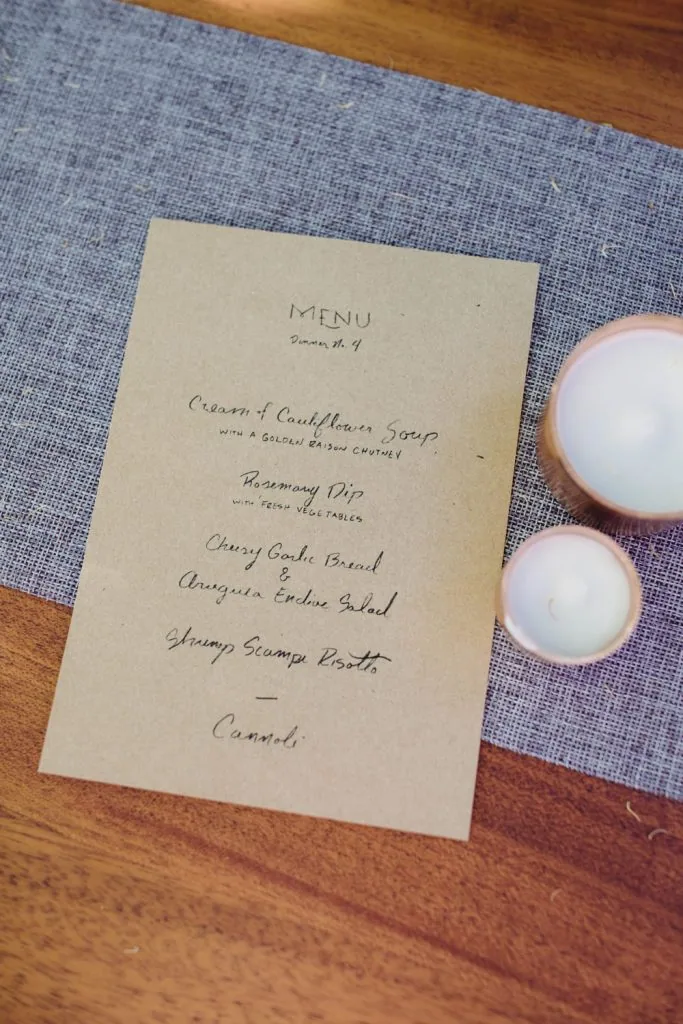 MENU
Dinner No. 4
Cream of Cauliflower Soup
WITH A GOLDEN RAISON CHUTNEY
Rosemary Dip
WITH FRESH VEGETABLES
Cheesy Garlic Bread
&
Arugula Endive Salad
Shrimp Scampi Risotto
—
Cannoli